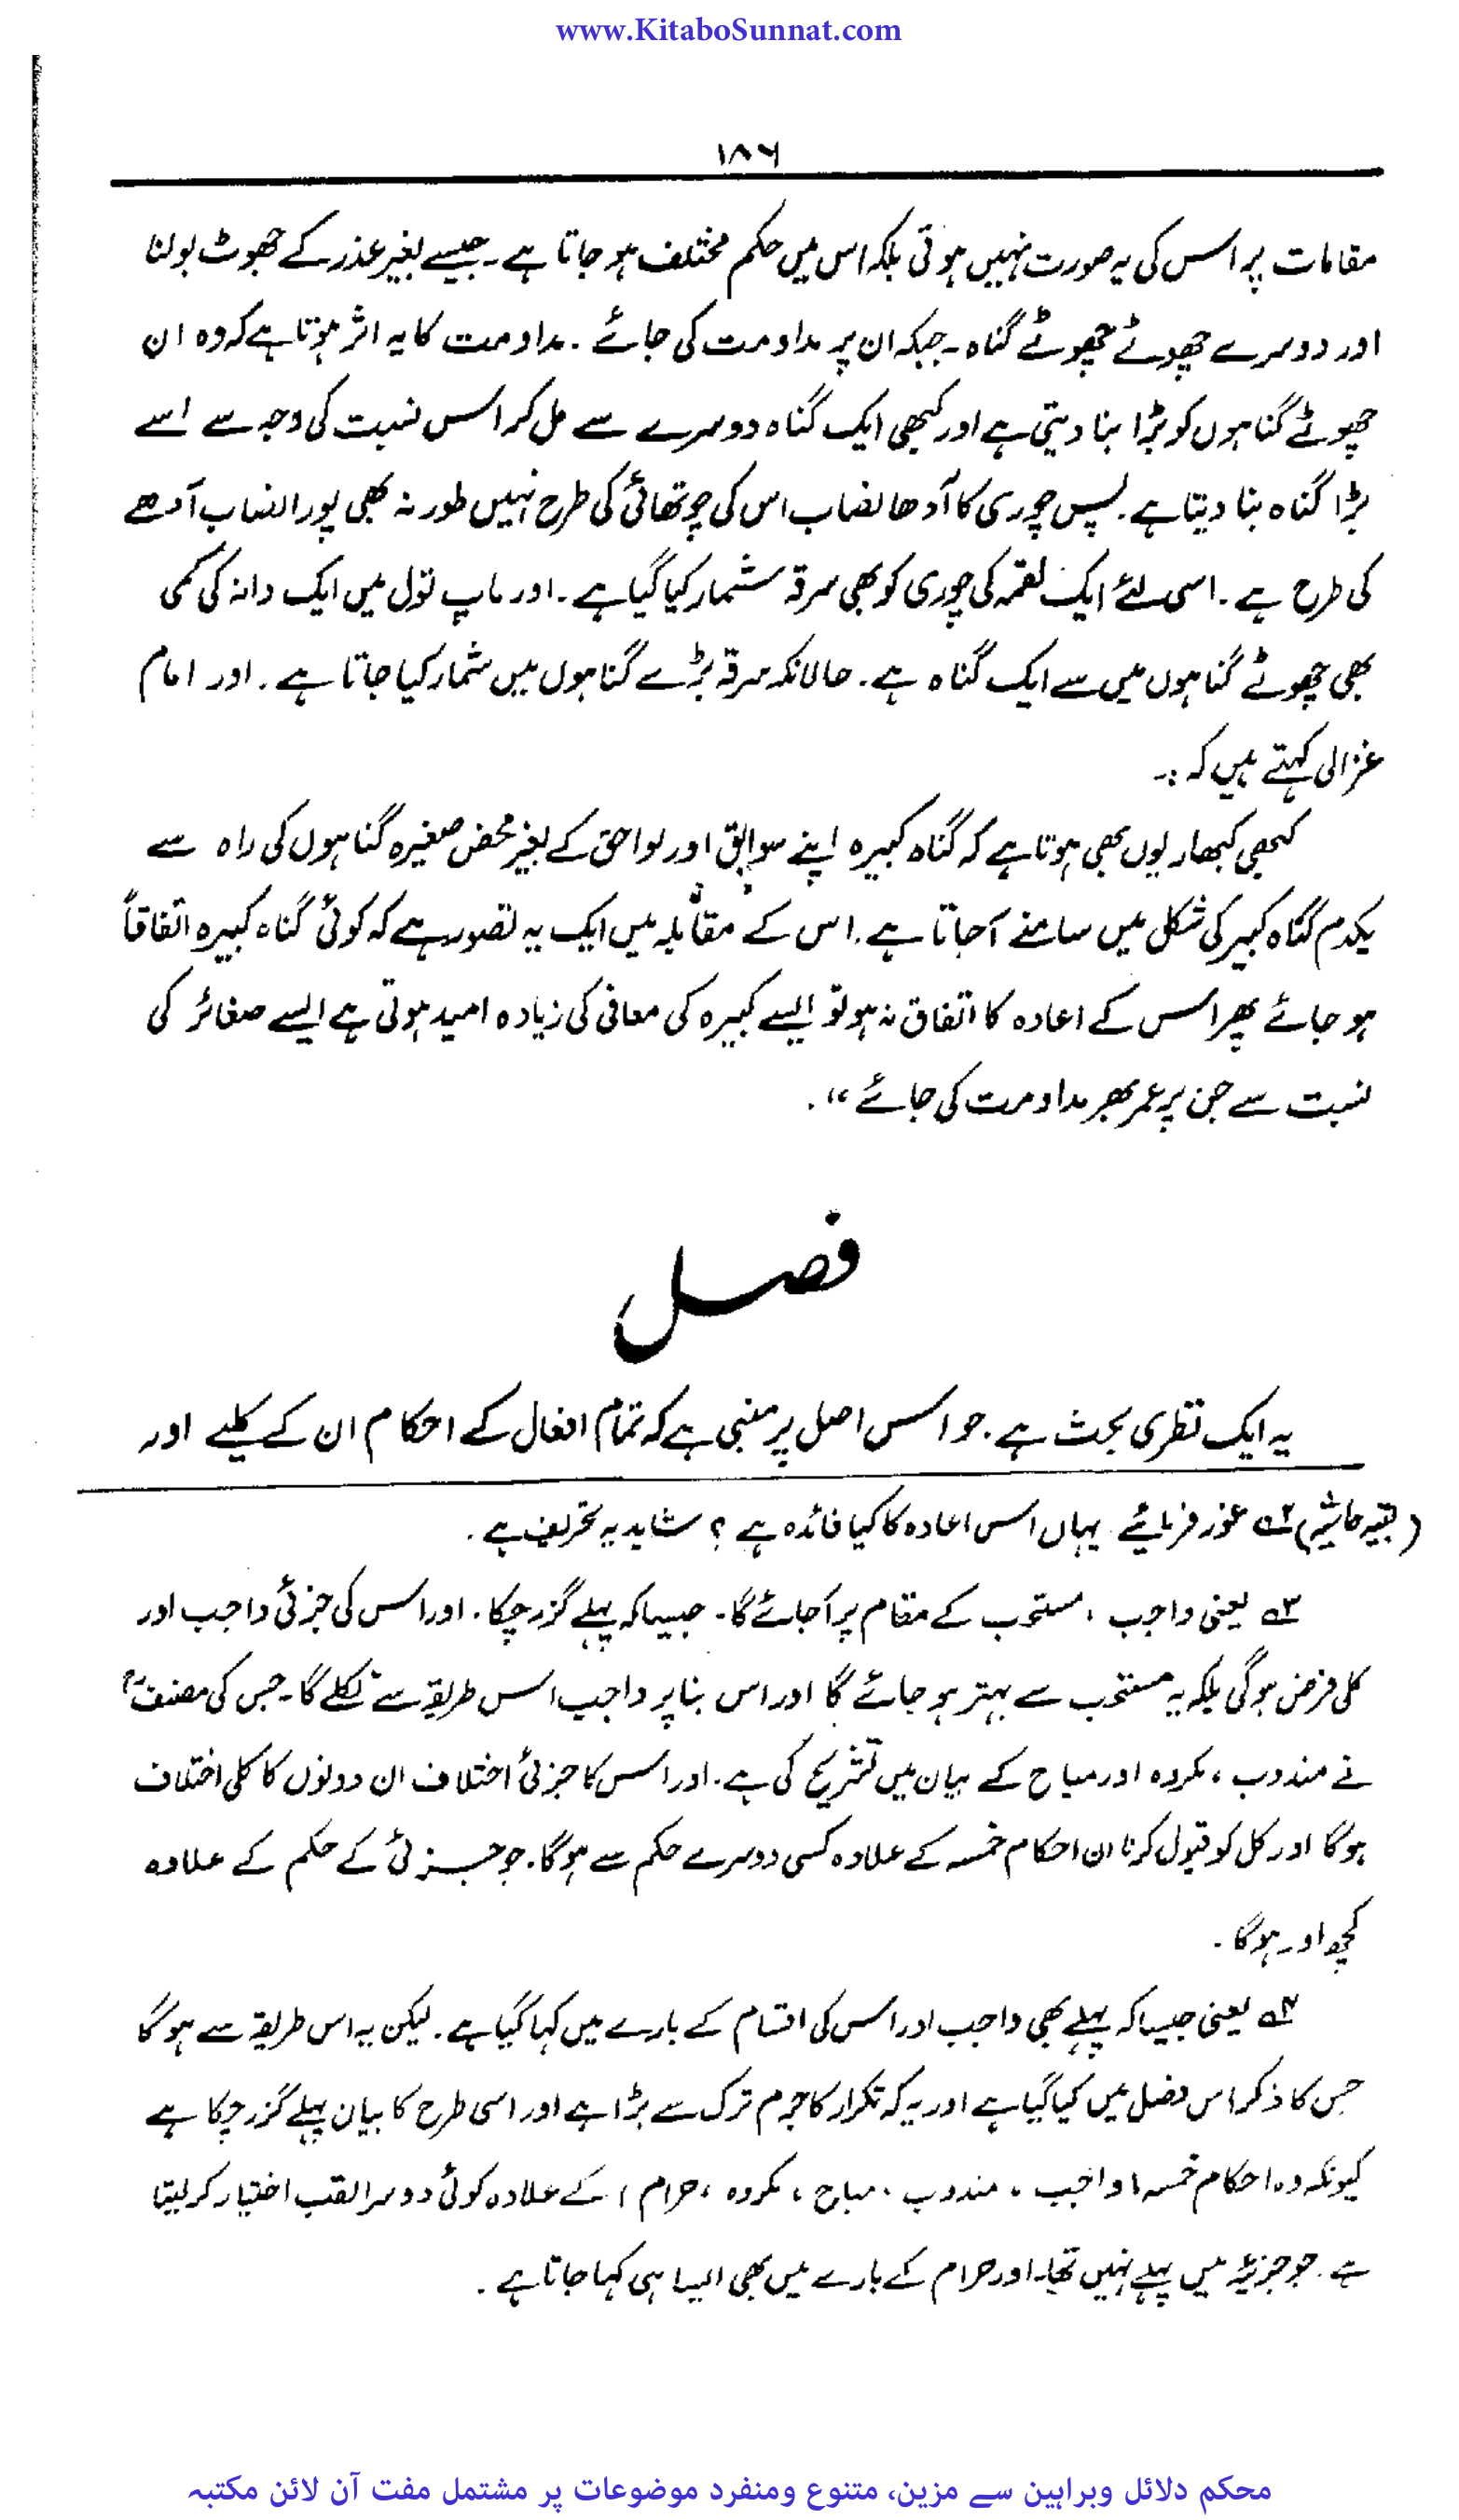 www.KitaboSunnat.com
۱۸۶
مقامات پر اس کی یہ صورت نہیں ہوتی بلکہ اس میں حکم مختلف ہو جاتا ہے۔ جیسے بغیر عذر کے جھوٹ بولنا
اور دوسرے چھوٹے چھوٹے گناہ۔ جبکہ ان پر مداومت کی جائے۔ مداومت کا یہ اثر ہوتا ہے کہ وہ ان
چھوٹے گناہوں کو بڑا بنا دیتی ہے اور کبھی ایک گناہ دوسرے سے مل کر اس نسبت کی وجہ سے اسے
بڑا گناہ بنا دیتا ہے۔ پس چوری کا آدھا نصاب اس کی چوتھائی کی طرح نہیں طور نہ بھی پورا نصاب آدھے
کی طرح ہے۔ اسی لئے ایک لقمہ کی چوری کو بھی سرقہ شمار کیا گیا ہے۔ اور ماپ تول میں ایک دانہ کی کمی
بھی چھوٹے گناہوں میں سے ایک گناہ ہے۔ حالانکہ سرقہ بڑے گناہوں میں شمار کیا جاتا ہے۔ اور امام
غزالی کہتے ہیں کہ :۔
کبھی کبھار یوں بھی ہوتا ہے کہ گناہ کبیرہ اپنے سوابق اور لواحق کے بغیر محض صغیرہ گناہوں کی راہ سے
یکدم گناہ کبیر کی شکل میں سامنے آ جاتا ہے۔ اس کے مقابلہ میں ایک یہ تصور ہے کہ کوئی گناہ کبیرہ اتفاقاً
ہو جائے پھر اس کے اعادہ کا اتفاق نہ ہو تو ایسے کبیرہ کی معافی کی زیادہ امید ہوتی ہے ایسے صغائر کی
نسبت سے جن پر عمر بھر مداومت کی جائے “۔
فصل
یہ ایک نظری بحث ہے۔ جو اس اصل پر مبنی ہے کہ تمام افعال کے احکام ان کے کلیے اور
(بقیہ حاشیہ) ۲ غور فرمائیے یہاں اس اعادہ کا کیا فائدہ ہے ؟ شاید یہ تحریف ہے۔
۳ یعنی واجب ، مستحب کے مقام پر آ جائے گا۔ جیسا کہ پہلے گزر چکا۔ اور اس کی جزئی واجب اور
کلی فرض ہوگی بلکہ یہ مستحب سے بہتر ہو جائے گا اور اس بنا پر واجب اس طریقہ سے نکلے گا۔ جس کی مصنفؒ
نے مندوب ، مکروہ اور مباح کے بیان میں تشریح کی ہے۔ اور اس کا جزئی اختلاف ان دونوں کا کلی اختلاف
ہوگا اور کل کو قبول کرنا ان احکام خمسہ کے علاوہ کسی دوسرے حکم سے ہوگا۔ جو جزئی کے حکم کے علاوہ
کچھ اور ہوگا۔
۴ یعنی جیسا کہ پہلے بھی واجب اور اس کی اقسام کے بارے میں کہا گیا ہے۔ لیکن یہ اس طریقہ سے ہوگا
جس کا ذکر اس فصل میں کیا گیا ہے اور یہ کہ تکرار کا جرم ترک سے بڑا ہے اور اسی طرح کا بیان پہلے گزر چکا ہے
کیونکہ وہ احکام خمسہ (واجب ، مندوب ، مباح ، مکروہ ، حرام) کے علاوہ کوئی دوسرا لقب اختیار کر لیتا
ہے۔ جو جزئیہ میں پہلے نہیں تھا۔ اور حرام کے بارے میں بھی ایسا ہی کہا جاتا ہے۔
محکم دلائل وبراہین سے مزین، متنوع ومنفرد موضوعات پر مشتمل مفت آن لائن مکتبہ